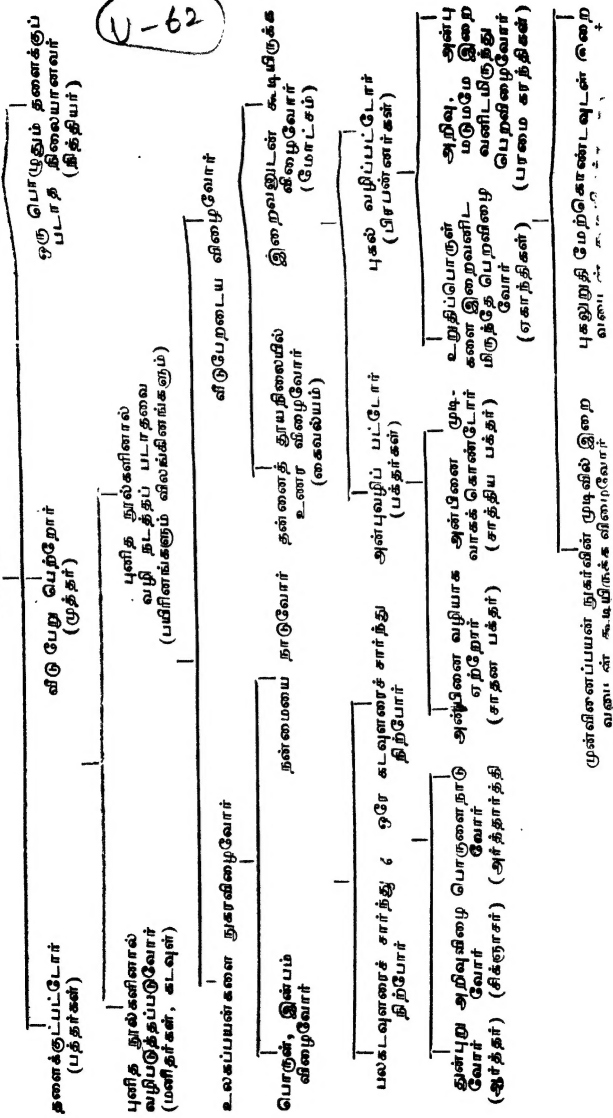 U-62
தளைக்குட்பட்டோர்
(பத்தர்கள்)
வீடு பேறு பெற்றோர்
(முத்தர்)
ஒரு பொழுதும் தளைக்குப்
படாத நிலையானவர்
(நித்தியர்)
புனித நூல்களினால்
வழிபடுத்தப்படுவோர்
(மனிதர்கள், கடவுள்)
புனித நூல்களினால்
வழி நடத்தப் படாதவை
(பயிரினங்களும் விலங்கினங்களும்)
உலகப்பயன்களை நுகரவிழைவோர்
வீடுபேறடைய விழைவோர்
பொருள், இன்பம்
விழைவோர்
நன்மையை நாடுவோர்
தன்னைத் தூயநிலையில்
உணர விழைவோர்
(கைவல்யம்)
இறைவனுடன் கூடியிருக்க
விழைவோர்
(மோட்சம்)
பலகடவுளரைச் சார்ந்து
நிற்போர்
ஒரே கடவுளரைச் சார்ந்து
நிற்போர்
அன்புவழிப் பட்டோர்
(பக்தர்கள்)
புகல் வழிப்பட்டோர்
(பிரபன்னர்கள்)
துன்புறு
வோர்
(ஆர்த்தர்)
அறிவுவிழை
வோர்
(சிக்ஞாசர்)
பொருளைநாடு
வோர்
(அர்த்தார்த்தி)
அன்பினை வழியாக
ஏற்றோர்
(சாதன பக்தர்)
அன்பினை முடி-
வாகக் கொண்டோர்
(சாத்திய பக்தர்)
உறுதிப்பொருள்
களை இறைவனிட
மிருந்தே பெறவிழை
வோர்
(ஏகாந்திகள்)
அறிவு, அன்பு
மட்டுமே இறை
வனிடமிருந்து
பெறவிழைவோர்
(பரமை காந்திகள்)
முன்வினைப்பயன் நுகர்வின் முடிவில் இறை
கூடியிருக்க விழைவோர்
புகலுறுதி மேற்கொண்டவுடன் இறை